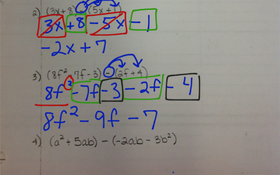 2) (3x + 8) - (5x + 1)
3x + 8 - 5x - 1
-2x + 7
3) (8f² - 7f - 3) - (2f + 4)
8f² - 7f - 3 - 2f - 4
8f² - 9f - 7
4) (a² + 5ab) - (-2ab - 3b²)